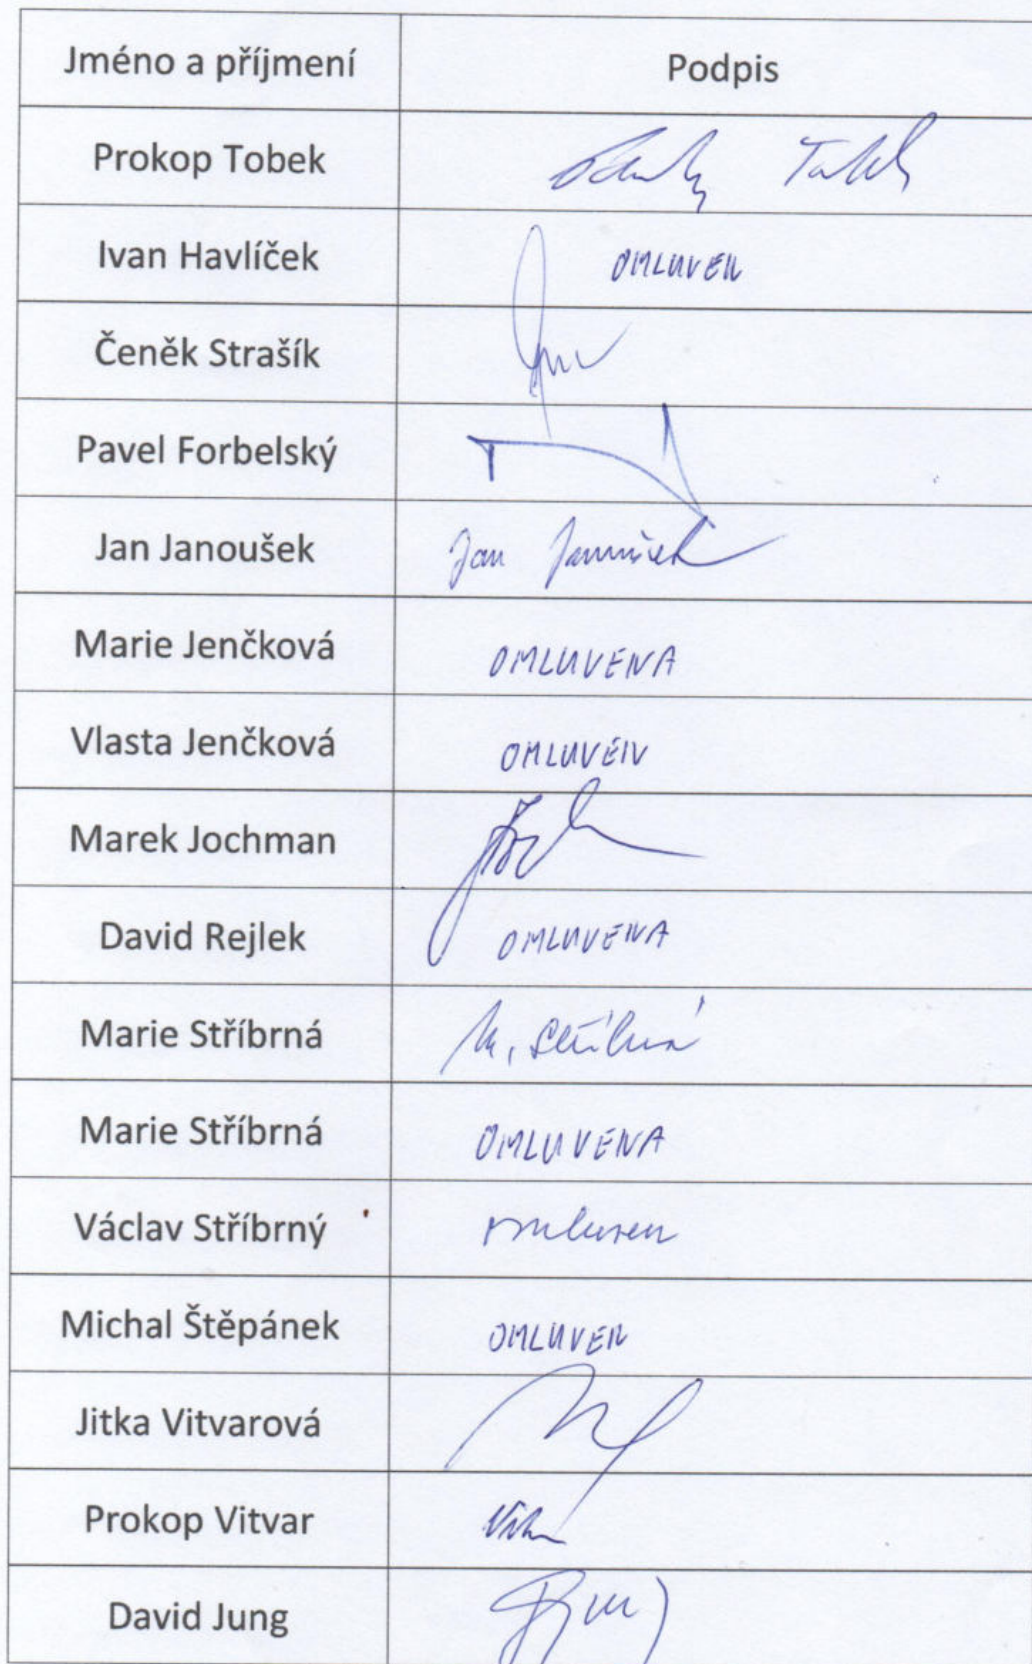 Jméno a příjmení Podpis
Prokop Tobek
Ivan Havlíček OMLUVEN
Čeněk Strašík
Pavel Forbelský
Jan Janoušek Jan Janoušek
Marie Jenčková OMLUVENA
Vlasta Jenčková OMLUVEN
Marek Jochman
David Rejlek OMLUVENA
Marie Stříbrná M. Stříbrná
Marie Stříbrná OMLUVENA
Václav Stříbrný omluven
Michal Štěpánek OMLUVEN
Jitka Vitvarová
Prokop Vitvar
David Jung